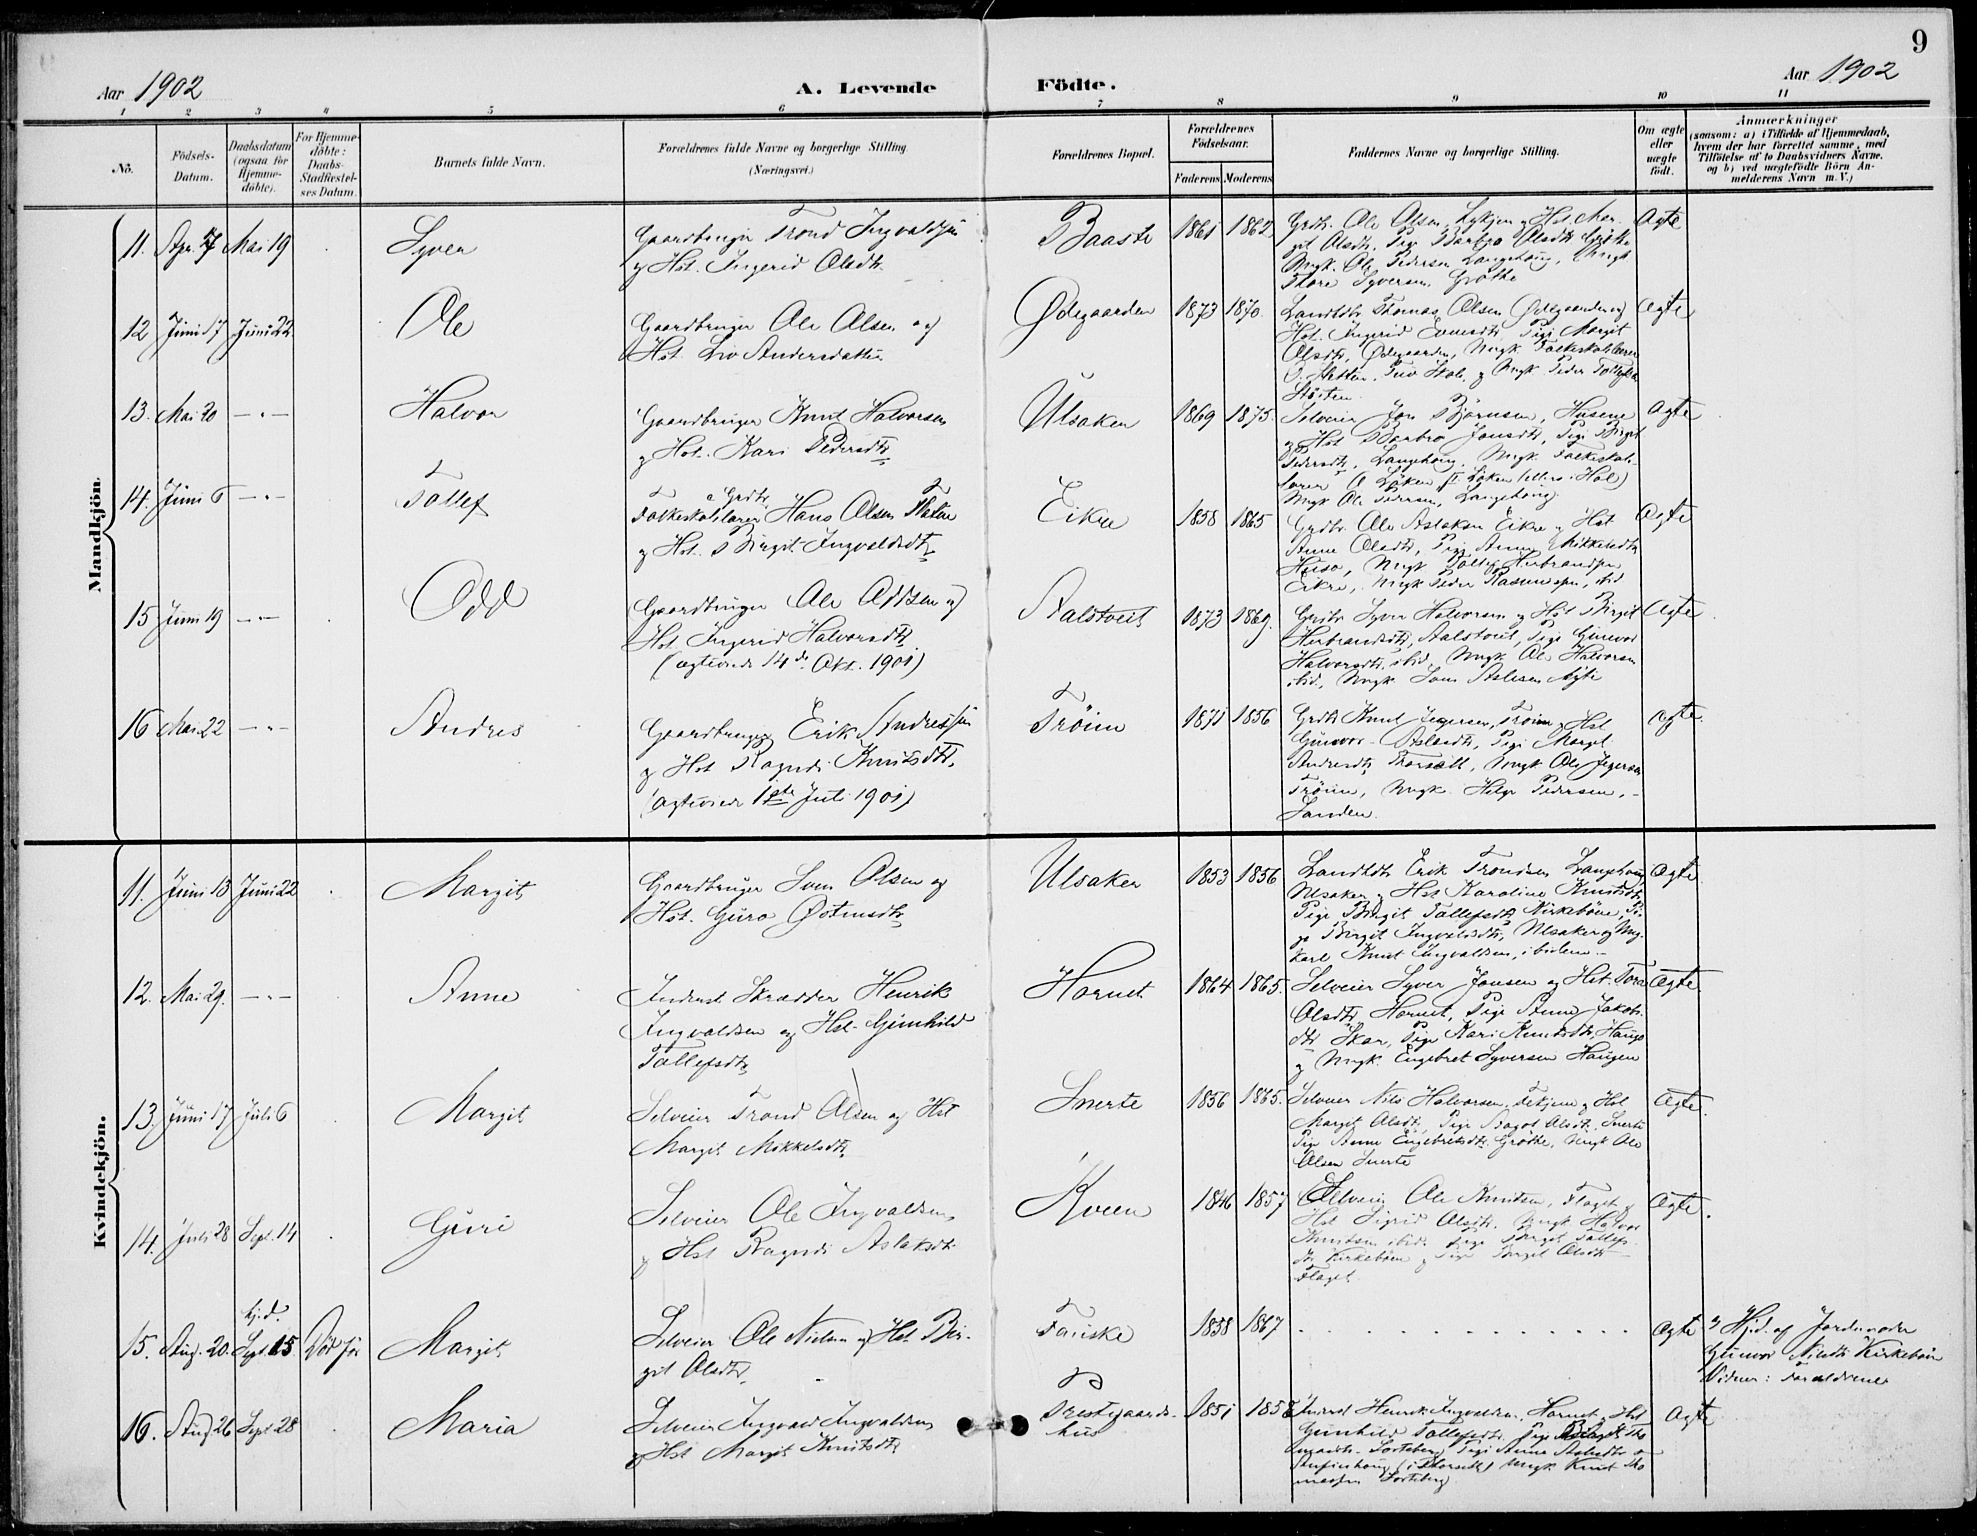 9
Aar 1902
A. Levende Födte.
Aar 1902
1 2 3 4 5 6 7 8 9 10 11
No.
Födsels-Datum.
Daabsdatum (ogsaa for Hjemme-döbte).
For Hjemme-döbte: Daabs-Stadfæstel-ses Datum.
Barnets fulde Navn.
Forældrenes fulde Navne og borgerlige Stilling
(Næringsvei.)
Forældrenes Bopæl.
Forældrenes Födselsaar.
Faderens Moderens
Faddernes Navne og borgerlige Stilling.
Om ægte eller uægte födt.
Anmærkninger
(saasom: a) i Tilfælde af Hjemmedaab, hvem der har forrettet samme, med Tilföielse af to Daabsvidners Navne, og b) ved uægtefödte Börn An-melderens Navn m. V.)
Mandkjön.
11. Apr. 7 Mai 19 Syver
Gaardbruger Trond Ingvaldsen
og Hst. Ingerid Olsdtr.
Baasto 1861 1862
Grdbr. Ole Olsen, Lykjen og Hst. Mar-
git Olsdtr. Pige Barbro Olsdtr. Gröthe
Ungk. Ole Pedersen Langehaug, Ungk
Thore Syversen Gröthe
Ægte
12 Juni 17 Juni 22 Ole
Gaardbruger Ole Olsen og
Hst. Liv Andersdatter
Ødegaarden 1873 1870.
Landhdl. Thomas Olsen Ødegaarden og
Hst. Ingerid Pige Margit
Olsdtr, Ødegaarden, Ungk. Folkeskolelærer
Ungk. Peder
Ægte
13. Mai 20 — " — Halvor
Gaardbruger Knut Halvorsen
og Hst. Kari Pedersdtr
Ulsaker 1869 1875.
Selveier Jon Björnsen, Husene
og Hst Barbro Jonsdtr, Pige Birgit
Pedersdtr, Langehaug, Ungk. Folkeskole-
lærer O Löken (fr. Löken i Hol)
Ungk Ole Pedersen, Langehaug
Ægte
14. Juni 6 — " — Tollef
og Grdbr.
Folkeskolelærer Hans Olsen
og Hst. Birgit Ingvaldsdtr
Eikre 1858 1865
Grdbr. Ole Aslaksen Eikre og Hst
Anne Olsdtr, Pige Anne Mikkelsdtr
Huso, Ungk Tollef Herbrandsen
Eikre, Ungk Peder Rasmussen, ibid
Ægte
15 Juni 19 — " — Odd
Gaardbruger Ole Oddsen og
Hst. Ingerid Halvorsdtr.
(ægteviede 14de Okt. 1901)
Aalstveit 1873 1869.
Grdbr Syver Halvorsen og Hst Birgit
Herbrandsdtr, Aalstveit, Pige Gunvor
Halvorsdtr. ibid, Ungk Ole Halvorsen
ibid., Ungk. Aslesen
Ægte
16 Mai 22 — " — Andres
Gaardbruger Erik Andressen
og Hst Ragndi Knutsdtr.
(ægteviede 1ste Juli 1901)
Tröim 1871 1856
Grdbr Knut Jegersen, Tröim og Hst
Gunvor Pige Margit
Andresdtr, Ungk Ole Jegersen
Tröim, Ungk. Helge Pedersen,
Sanden.
Ægte.
Kvindekjön.
11. Juni 13 Juni 22 Margit
Gaardbruger Sven Olsen og
Hst. Guro Østensdtr
Ulsaker 1853 1856
Landhdl Erik Trondsen Langehaug
Ulsaker og Hst Karoline Knutsdtr
Pige Birgit Tollefsdtr Kirkeböen, Pi-
ge Birgit Ingvaldsdtr, Ulsaker og Ung-
karl Knut Ingvaldsen, ibidem
Ægte
12. Mai 29. — " — Anne
Inderst Skrædder Henrik
Ingvaldsen og Hst. Gunhild
Tollefsdtr.
Hornet 1864 1865.
Selveier Syver Jonsen og Hst. Tora
Olsdtr Hornet, Pige Anne Jakobs-
dtr Skar, Pige Kari Knutsdtr, Hauge
og Ungk. Engebret Syversen Haugen
Ægte
13. Juni 17 Juli 6 Margit
Selveier Trond Olsen og Hst
Margit Mikkelsdtr.
Snerte 1856 1865.
Selveier Nils Halvorsen, og Hst
Margit Olsdtr, Pige Ragot Olsdtr. Snerte
Pige Anne Engebretsdtr Gröthe, Ungk Ole
Olsen Snerte
Ægte.
14. Juli 28 Sept. 14 Guri
Selveier Ole Ingvaldsen,
og Hst Ragndi Aslaksdtr.
Kveen 1846 1857
Selveier Ole Knutsen, Flaget og
Hst Sigrid Olsdtr. Ungk Halvor
Knutsen ibid. Pige Birgit Tollefs-
dtr Kirkeböen og Pige Birgit Olsdtr
Flaget
Ægte.
15. Aug. 20. hj.d. Sept. 15 Död för Margit
Selveier Ole Nielsen og Hst Bir-
git Olsdtr.
Fauske 1858 1867
Ægte
Hjd. af Jordemoder
Gunvor Nilsdtr Kirkeböen
Vidner: Forældrene
16. Aug 26 Sept 28 Maria
Selveier Ingvald Ingvaldsen
og Hst Margit Knutsdtr
Prestegaards-
hus
1851
Inderst Henrik Ingvaldsen, Hornet og Hst
Gunhild Tollefsdtr. Pige Birgit Tho-
masdtr. Sorteberg, Pige Anne
Ungk Knut Tho-
massen Sorteberg
Ægte